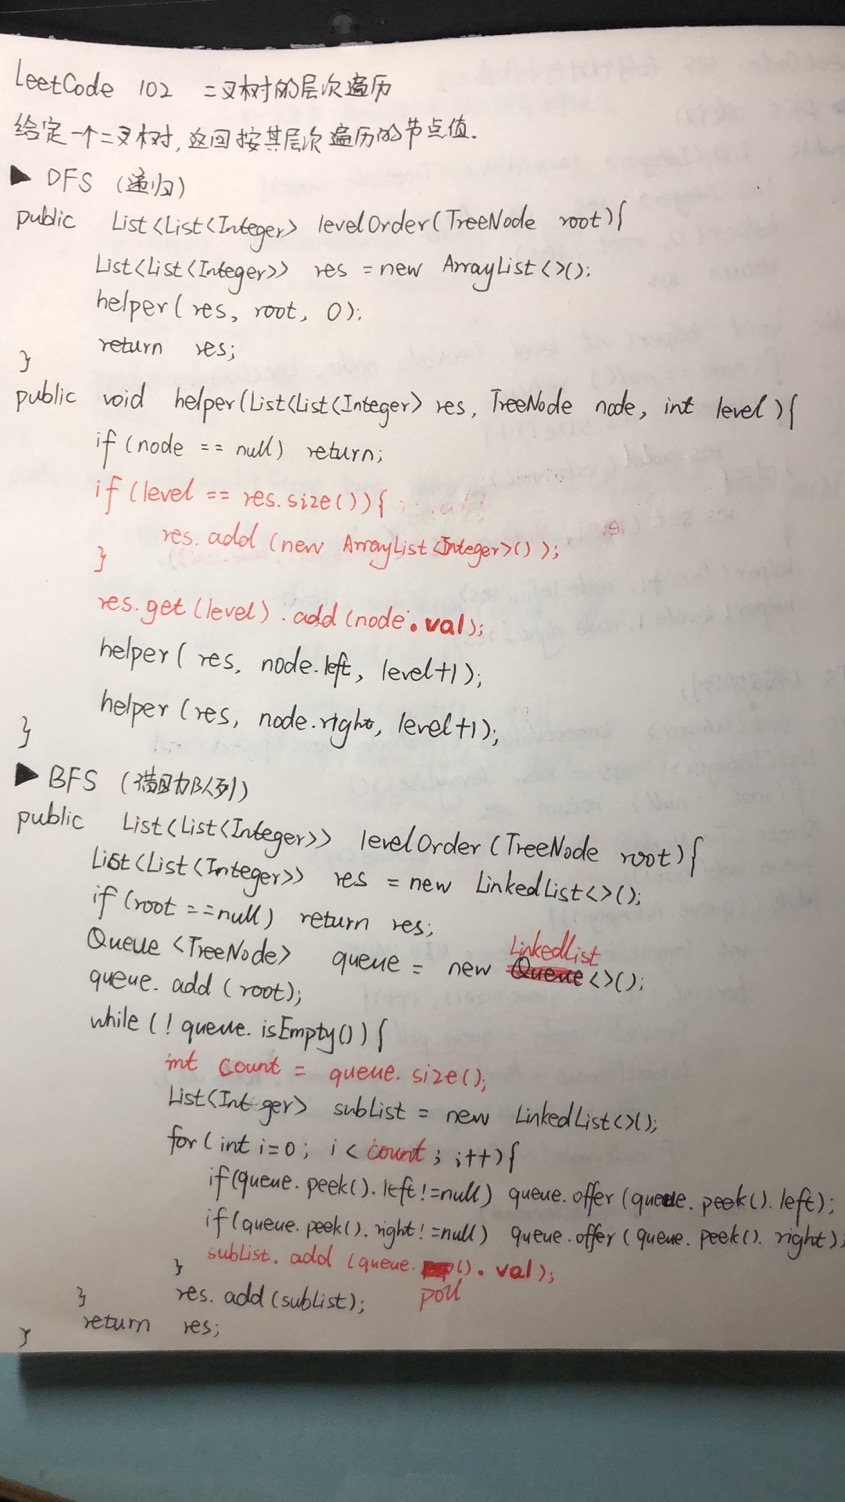 LeetCode 102 二叉树的层次遍历
给定一个二叉树,返回按其层次遍历的节点值.
▶ DFS (递归)
public List<List<Integer> levelOrder(TreeNode root){
List<List<Integer>> res = new ArrayList<>();
helper(res, root, 0);
return res;
}
public void helper(List<List<Integer> res, TreeNode node, int level){
if(node == null) return;
if(level == res.size()){
res.add(new ArrayList<Integer>());
}
res.get(level).add(node.val);
helper(res, node.left, level+1);
helper(res, node.right, level+1);
}
▶ BFS (借助队列)
public List<List<Integer>> levelOrder(TreeNode root){
List<List<Integer>> res = new LinkedList<>();
if(root ==null) return res;
Queue <TreeNode> queue = new LinkedList<>();
queue.add(root);
while(!queue.isEmpty()){
int count = queue.size();
List<Integer> subList = new LinkedList<>();
for(int i=0; i<count; i++){
if(queue.peek().left!=null) queue.offer(queue.peek().left);
if(queue.peek().right!=null) queue.offer(queue.peek().right);
subList.add(queue.poll().val);
}
res.add(subList);
}
return res;
}